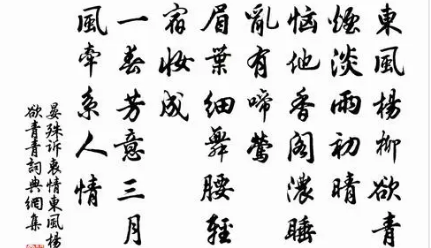 東風楊柳欲青
煙淡雨初晴
恼他香閣濃睡
亂有啼鶯
眉葉細舞腰輕
宿妆成
一春芳意三月
風牽系人情
晏殊诉衷情東風楊
欲青青詞典網集